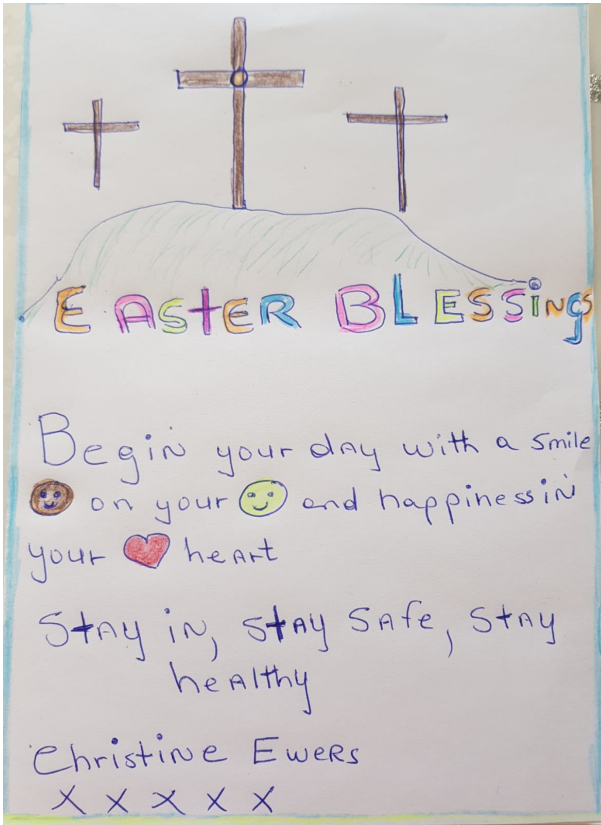 EASTER BLESSiNgS
Begin your day with a smile
on your and happiness in
your heart
Stay in, stay safe, stay
healthy
Christine Ewers
X X X X X